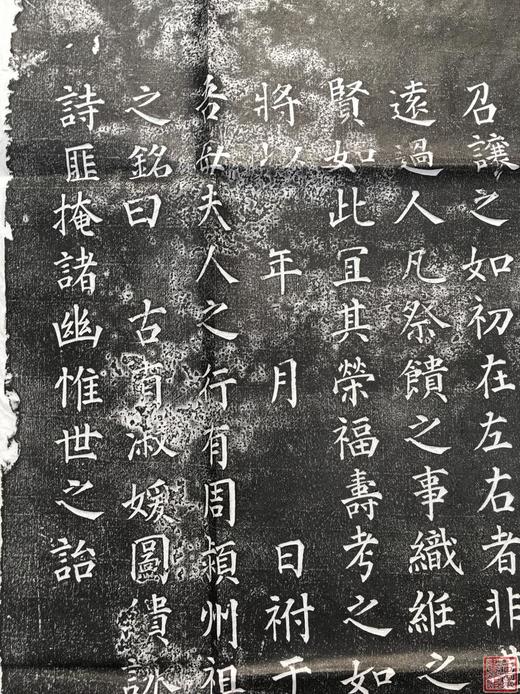 召讓之如初在左右者非
遠過人凡祭饋之事織絍之
賢如此宜其榮福壽考之如
將以 年 月 日祔于
吾母夫人之行有周潁州祖
之銘曰 古有淑媛圖繢
詩匪掩諸幽惟世之詒